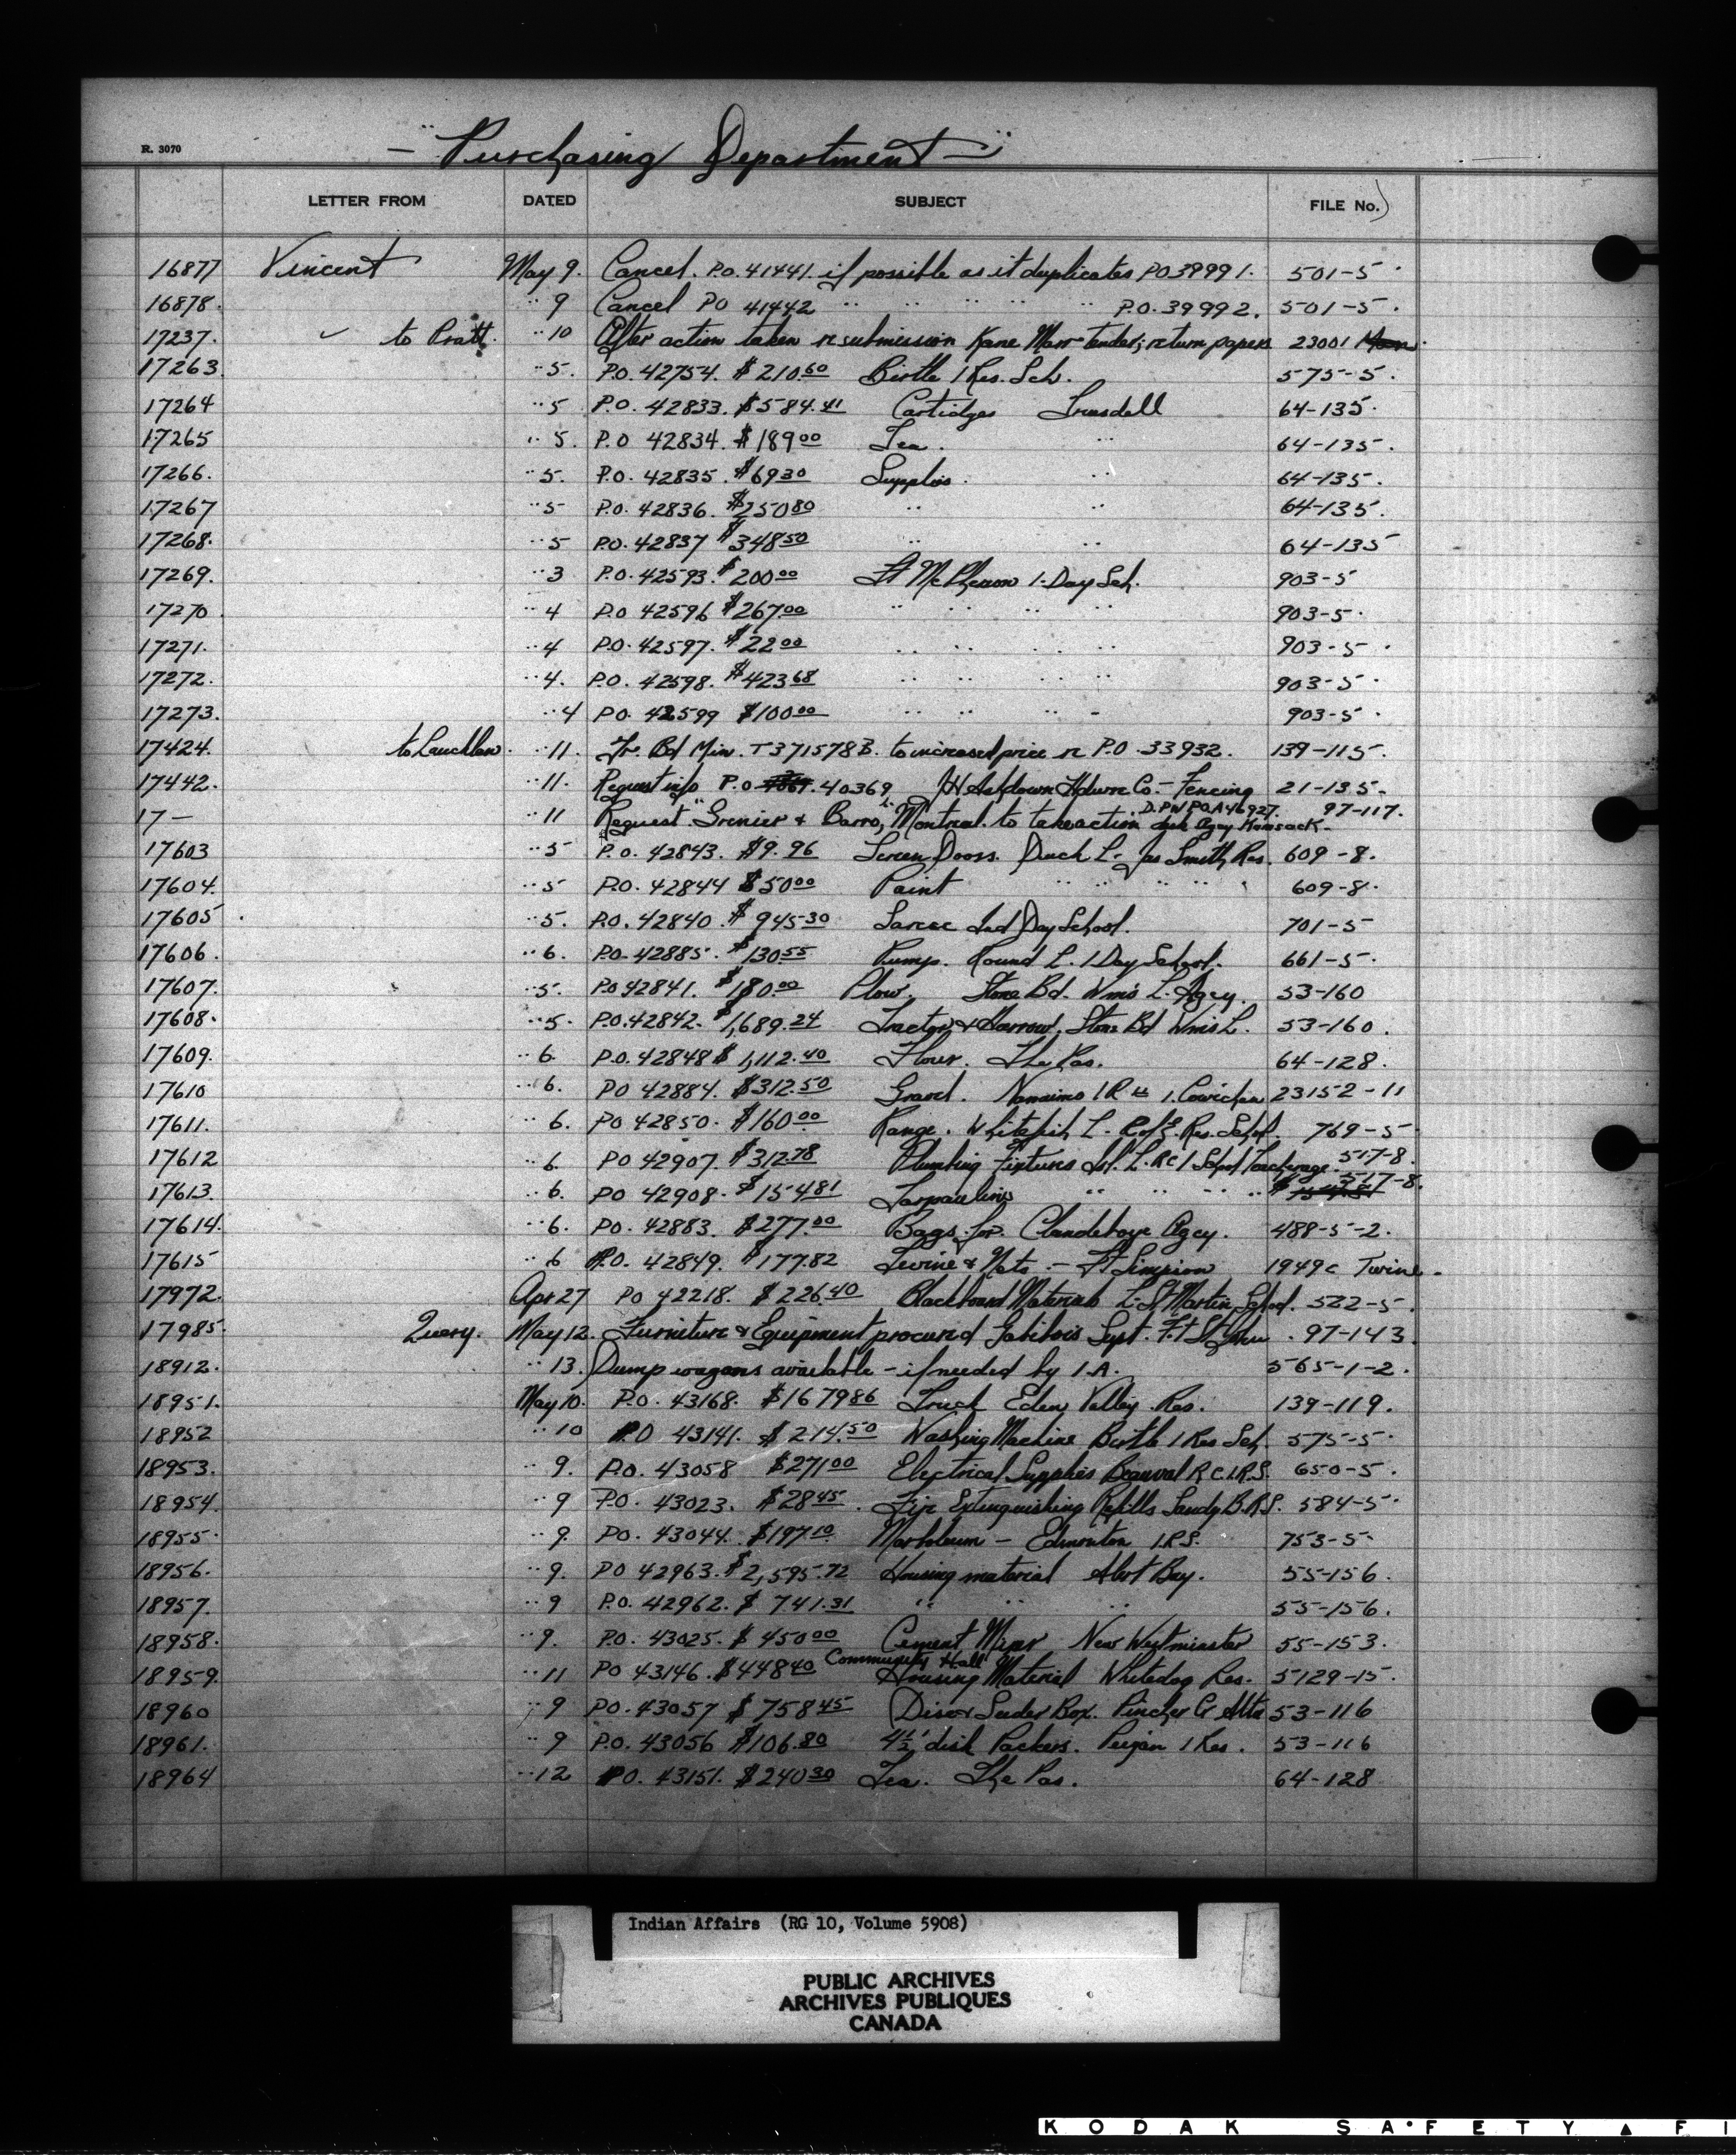 R. 3070
- "Purchasing Department" -
LETTER FROM DATED SUBJECT FILE No.
16877 Vincent May 9. Cancel. P.O. 41441. if possible as it duplicates PO 39991. 501-5.
16878. " 9 Cancel PO 41442 " " " " " P.O. 39992. 501-5.
17237. ✓ to Pratt. " 10 After action taken re submission Kane Marr tender; return papers 23001
17263. " 5. P.O. 42754. $210.60 Birtle I Res. Sch. 575-5.
17264 " 5 P.O. 42833. $584.41 Cartidges Truesdell 64-135.
17265 " 5. P.O 42834. $189.00 Tea. " 64-135.
17266. " 5. P.O. 42835. $69.30 Supplies. " 64-135.
17267 " 5 P.O. 42836. $250.80 " " 64-135.
17268. " 5 P.O. 42837 $348.50 " " 64-135
17269. " 3 P.O. 42593. $200.00 Ft McPherson I. Day Sch. 903-5
17270 " 4 P.O 42596 $267.00 " " " " 903-5.
17271. " 4 P.O. 42597. $22.00 " " " " 903-5.
17272. " 4. P.O. 42598. $423.68 " " " " 903-5.
17273. " 4 P.O. 42599 $100.00 " " " - 903-5.
17424. to Lauchlan. " 11. Tr. Bd Min. T371578B. to increased price re P.O. 33932. 139-115.
17442. " 11. Request info P.O. 40369 JH Ashdown Hdwre Co. - Fencing 21-135-
17- " 11 Request "Grenier & Barro, Montreal. to take action D.P.W P.O.A46927. Agcy Kamsack. 97-117.
17603 " 5 P.O. 42843. $9.96 Screen Doors. Duck L. Jas Smith Res. 609-8.
17604. " 5 P.O. 42844 $50.00 Paint " " " " 609-8.
17605. " 5. P.O. 42840. $945.30 Sarcee Ind Day School. 701-5
17606. " 6. P.O. 42885. $130.55 Pump. Round L. I Day School. 661-5.
17607. " 5. P.O 42841. $180.00 Plow. Stone Bd. Wms L. Agcy. 53-160
17608. " 5. P.O. 42842. $1,689.24 Tractor & Harrow. Stone Bd Wms L. 53-160.
17609. " 6. P.O. 42848 $1,112.40 Flour. The Pas. 64-128.
17610 " 6. PO 42884. $312.50 Gravel. Nanaimo IR 1. Cowichan 23152-11
17611. " 6. PO 42850. $160.00 Range. Whitefish L. C of E. Res. School. 769-5
17612 " 6. PO 42907. $312.78 Plumbing Fixtures Isl. L. RC I School Teacherage. 517-8.
17613. " 6. PO 42908. $154.81 Tarpaulins " " " " 517-8.
17614. " 6. PO. 42883. $277.00 Bags for. Clandeboye Agcy. 488-5-2.
17615 " 6 P.O. 42849. $177.82 Twine & Nets - Ft Simpson 1949c Twine.
17972. Apr 27 PO 42218. $226.40 Blackboard Materials L. St. Martin School. 522-5.
17985. Query. May 12. Furniture & Equipment procured Hosp. Ft St. John. 97-143.
18912. " 13. Dump wagons available - if needed by I.A. 565-1-2.
18951. May 10. P.O. 43168. $1679.86 Truck Eden Valley Res. 139-119.
18952 " 10 P.O 43141. $214.50 Washing Machine Birtle I Res Sch. 575-5.
18953. " 9. P.O. 43058 $271.00 Electrical Supplies Beauval R.C.I.R.S. 650-5.
18954. " 9 P.O. 43023. $28.45. Fire Extinguishing Refills Sandy B.R.S. 584-5.
18955. " 9. PO. 43044. $197.10 Marboleum - Edmonton I.R.S. 753-5
18956. " 9. PO 42963. $2,595.72 Housing material Alert Bay. 55-156.
18957. " 9 P.O. 42962. $741.31 " " " 55-156.
18958. " 9. P.O. 43025. $450.00 Cement Mixer New Westminster 55-153.
18959. " 11 PO 43146. $448.40 Community Hall Housing Material Whitedog Res. 5129-15.
18960 " 9 PO. 43057 $758.45 Disc & Seeder Box. Pincher Cr Alta 53-116
18961. " 9 P.O. 43056 $106.80 4½' disk Packers. Peigan I Res. 53-116
18964 " 12 P.O. 43151. $240.30 Tea. The Pas. 64-128
Indian Affairs (RG 10, Volume 5908)
PUBLIC ARCHIVES
ARCHIVES PUBLIQUES
CANADA
KODAK SAFETY ▲ FI